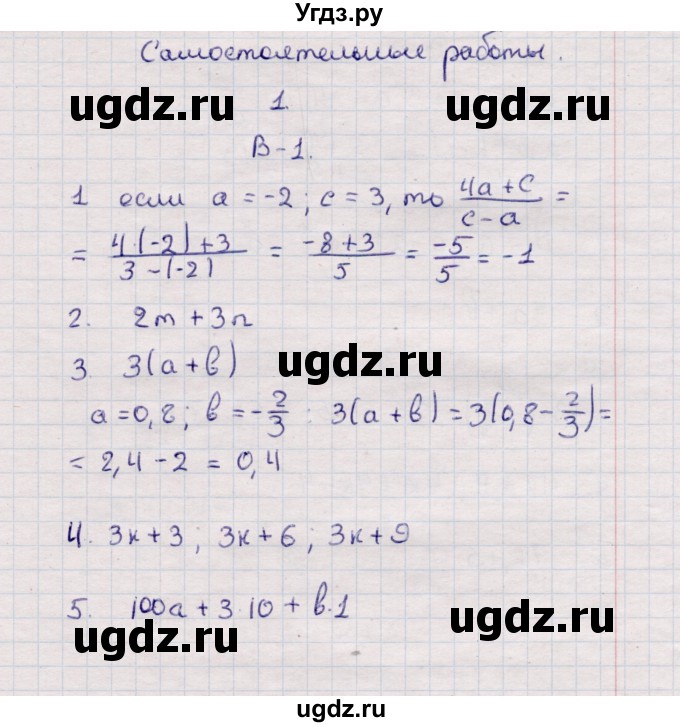 Угдз.ру
Самостоятельные работы.
ugdz.ru ugdz.ru
1.
В-1.
1 если a = -2; c = 3, то (4a + c)/(c - a) =
= (4·(-2)+3)/(3-(-2)) = (-8+3)/5 = -5/5 = -1
2. 2m + 3n
ugdz.ru
3. 3(a + b)
a = 0,8; b = -2/3 : 3(a + b) = 3(0,8 - 2/3) =
= 2,4 - 2 = 0,4
ugdz.ru
4. 3к + 3; 3к + 6; 3к + 9
5. 100a + 3·10 + b·1
ugdz.ru ugdz.ru
ugdz.ru